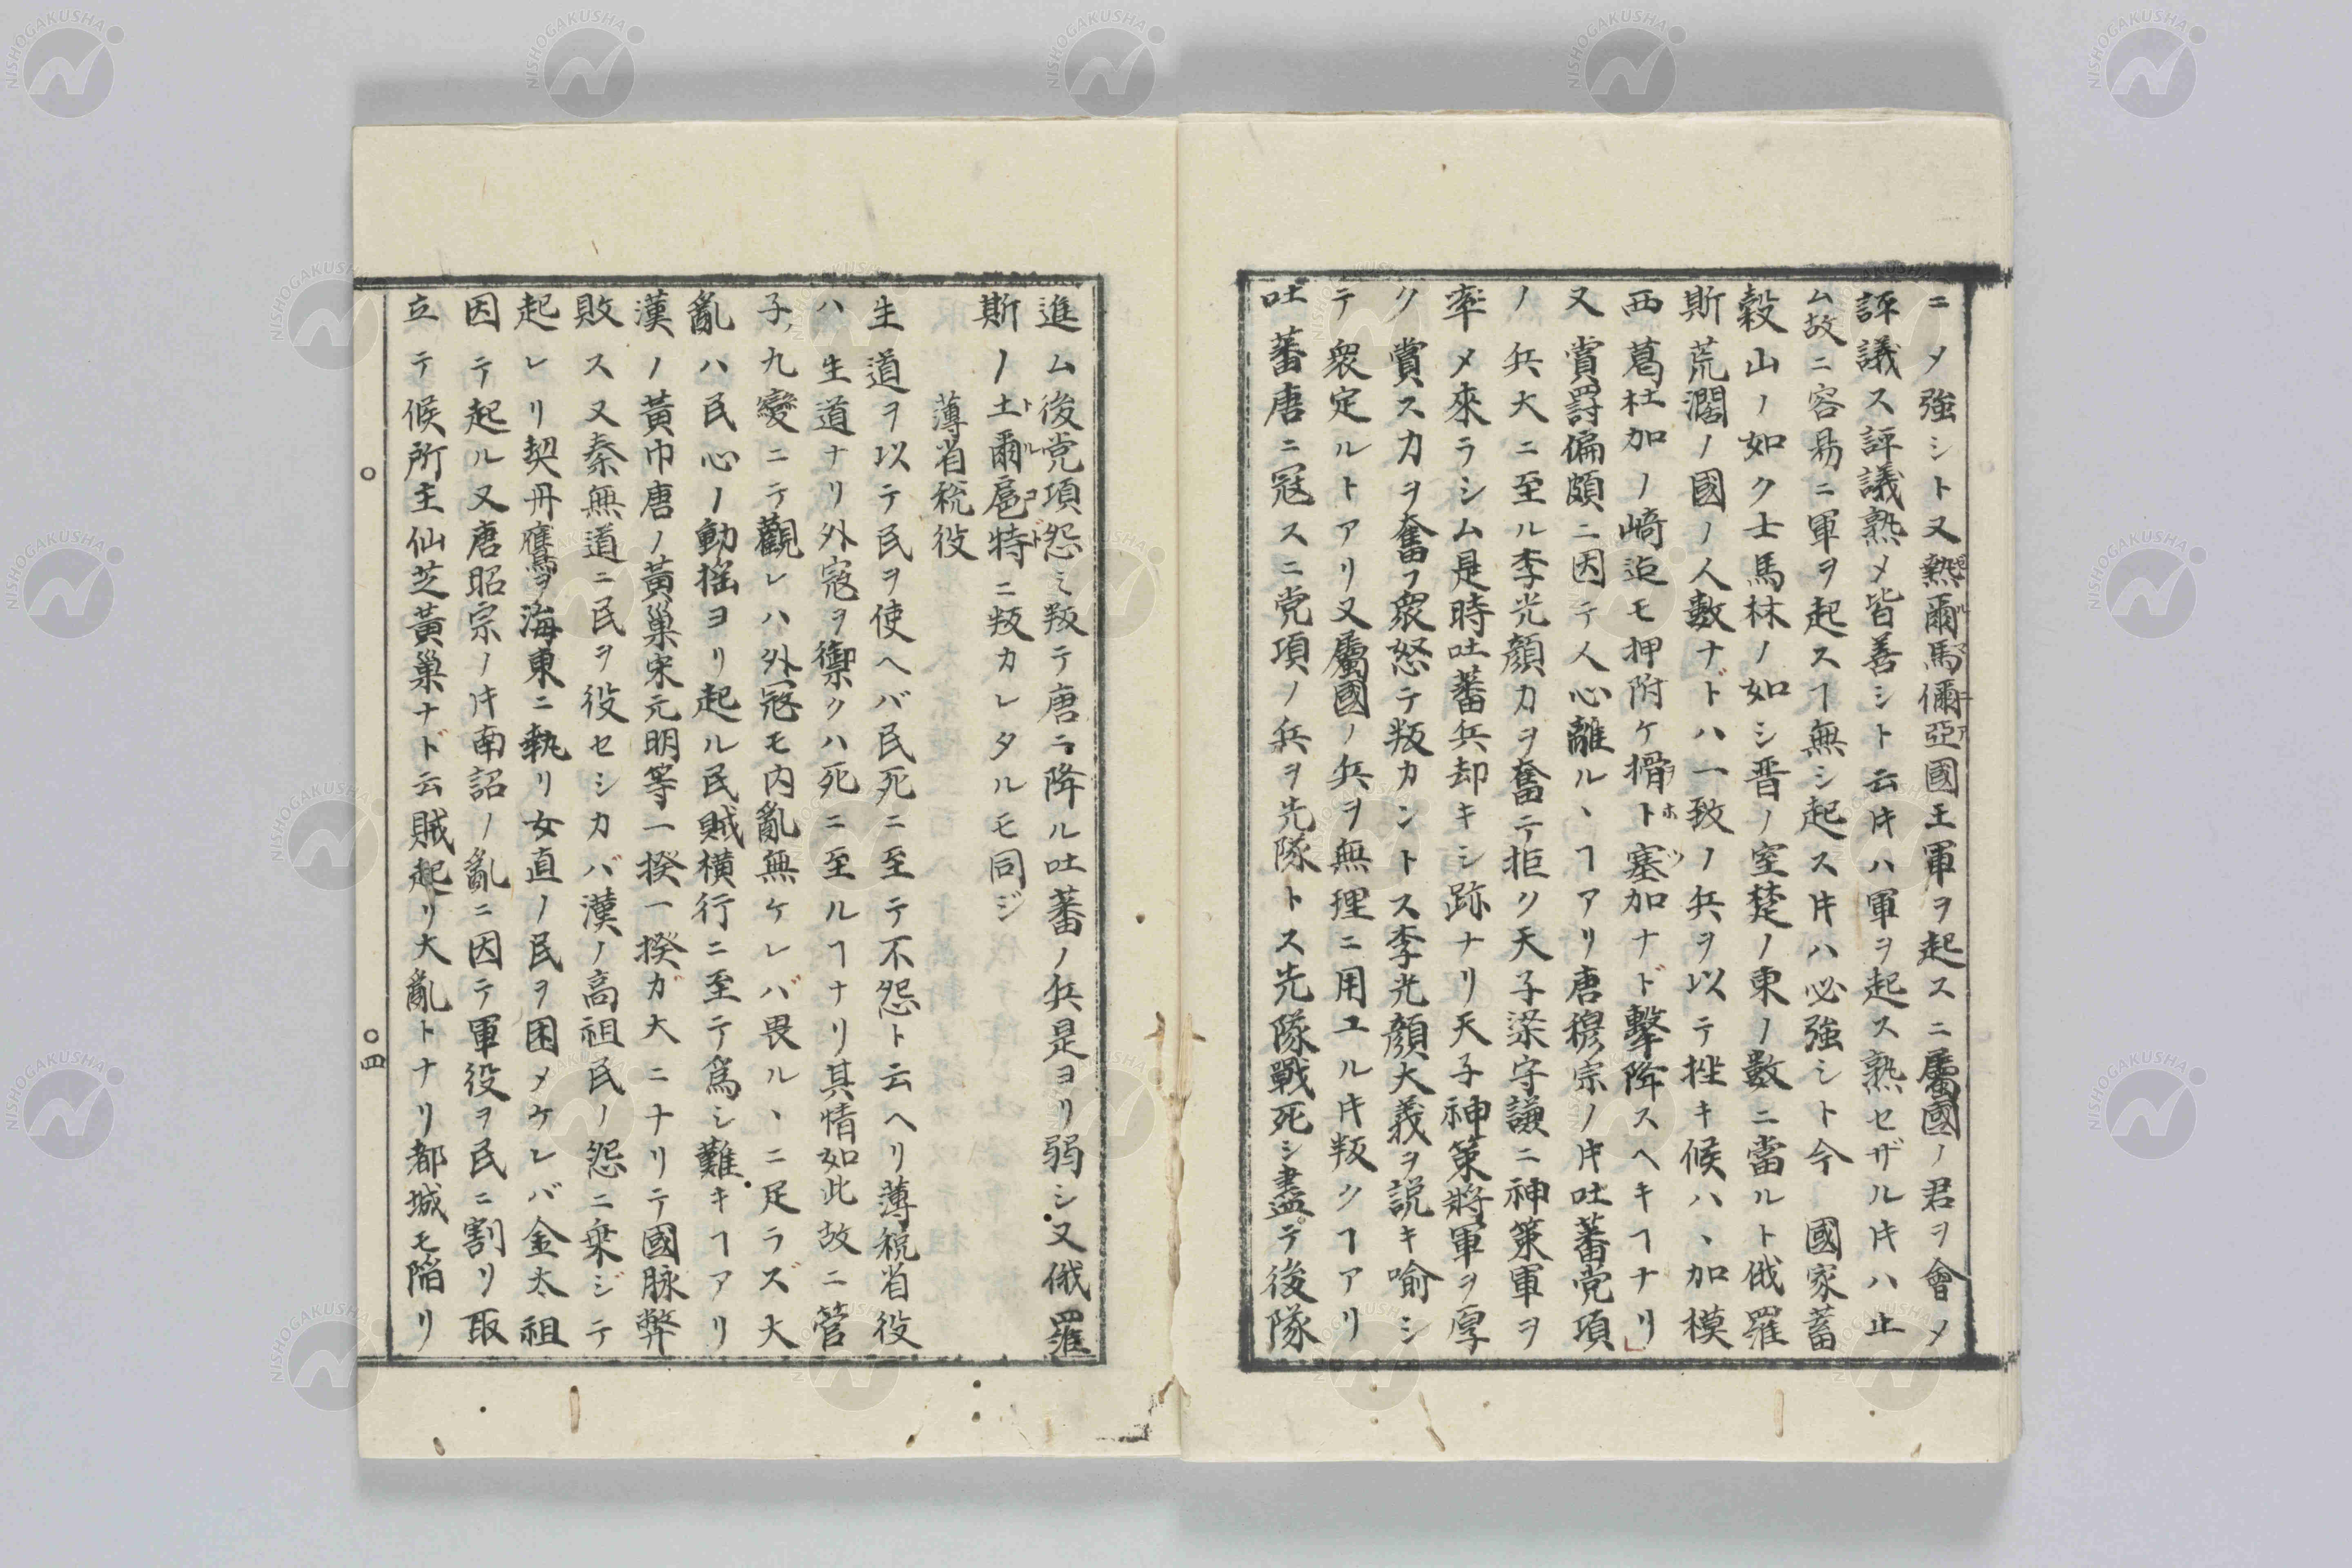 ニメ強シト又熱爾馬儞亞國王軍ヲ起スニ屬國ノ君ヲ會メ
評議ス評議熟メ皆善シト云𪜈ハ軍ヲ起ス熟セザル𪜈ハ止
ム故ニ容易ニ軍ヲ起スヿ無シ起ス𪜈ハ必強シト今 國家蓄
穀山ノ如ク士馬林ノ如シ晋ノ室楚ノ東ノ數ニ當ルト俄羅
斯荒濶ノ國ノ人數ナドハ一致ノ兵ヲ以テ挫キ候ハヽ加模
西葛杜加ノ﨑迠モ押附ケ搰ト塞加ナド擊降スヘキヿナリ
又賞罸偏頗ニ因テ人心離ルヽヿアリ唐穆宗ノ𪜈吐蕃党項
ノ兵大ニ至ル李光顔力ヲ奮テ拒ク天子梁守謙ニ神策軍ヲ
率メ來ラシム是時吐蕃兵却キシ跡ナリ天子神策將軍ヲ厚
ク賞ス力ヲ奮フ衆怒テ叛カントス李光顔大義ヲ説キ喻シ
テ衆定ルトアリ又屬國ノ兵ヲ無理ニ用ユル𪜈叛クヿアリ
吐蕃唐ニ冦スニ党項ノ兵ヲ先隊トス先隊戰死シ盡テ後隊
進ム後党項怨ミ叛テ唐ニ降ル吐蕃ノ兵是ヨリ弱シ又俄羅
斯ノ土爾扈特ニ叛カレタルモ同ジ
薄省税役
生道ヲ以テ民ヲ使ヘバ民死ニ至テ不怨ト云ヘリ薄税省役
ハ生道ナリ外寇ヲ禦クハ死ニ至ルヿナリ其情如此故ニ管
子九變ニテ觀レハ外冦モ内亂無ケレバ畏ルヽニ足ラズ大
亂ハ民心ノ動揺ヨリ起ル民賊横行ニ至テ爲シ難キヿアリ
漢ノ黃巾唐ノ黃巢宋元明等一揆一揆ガ大ニナリテ國脉弊
敗ス又秦無道ニ民ヲ役セシカバ漢ノ高祖民ノ怨ニ乗ジテ
起レリ契丹鷹ヲ海東ニ執リ女直ノ民ヲ困メケレバ金太祖
因テ起ル又唐昭宗ノ𪜈南詔ノ亂ニ因テ軍役ヲ民ニ割リ取
立テ候所主仙芝黃巢ナド云賊起リ大亂トナリ都城モ陥リ
四